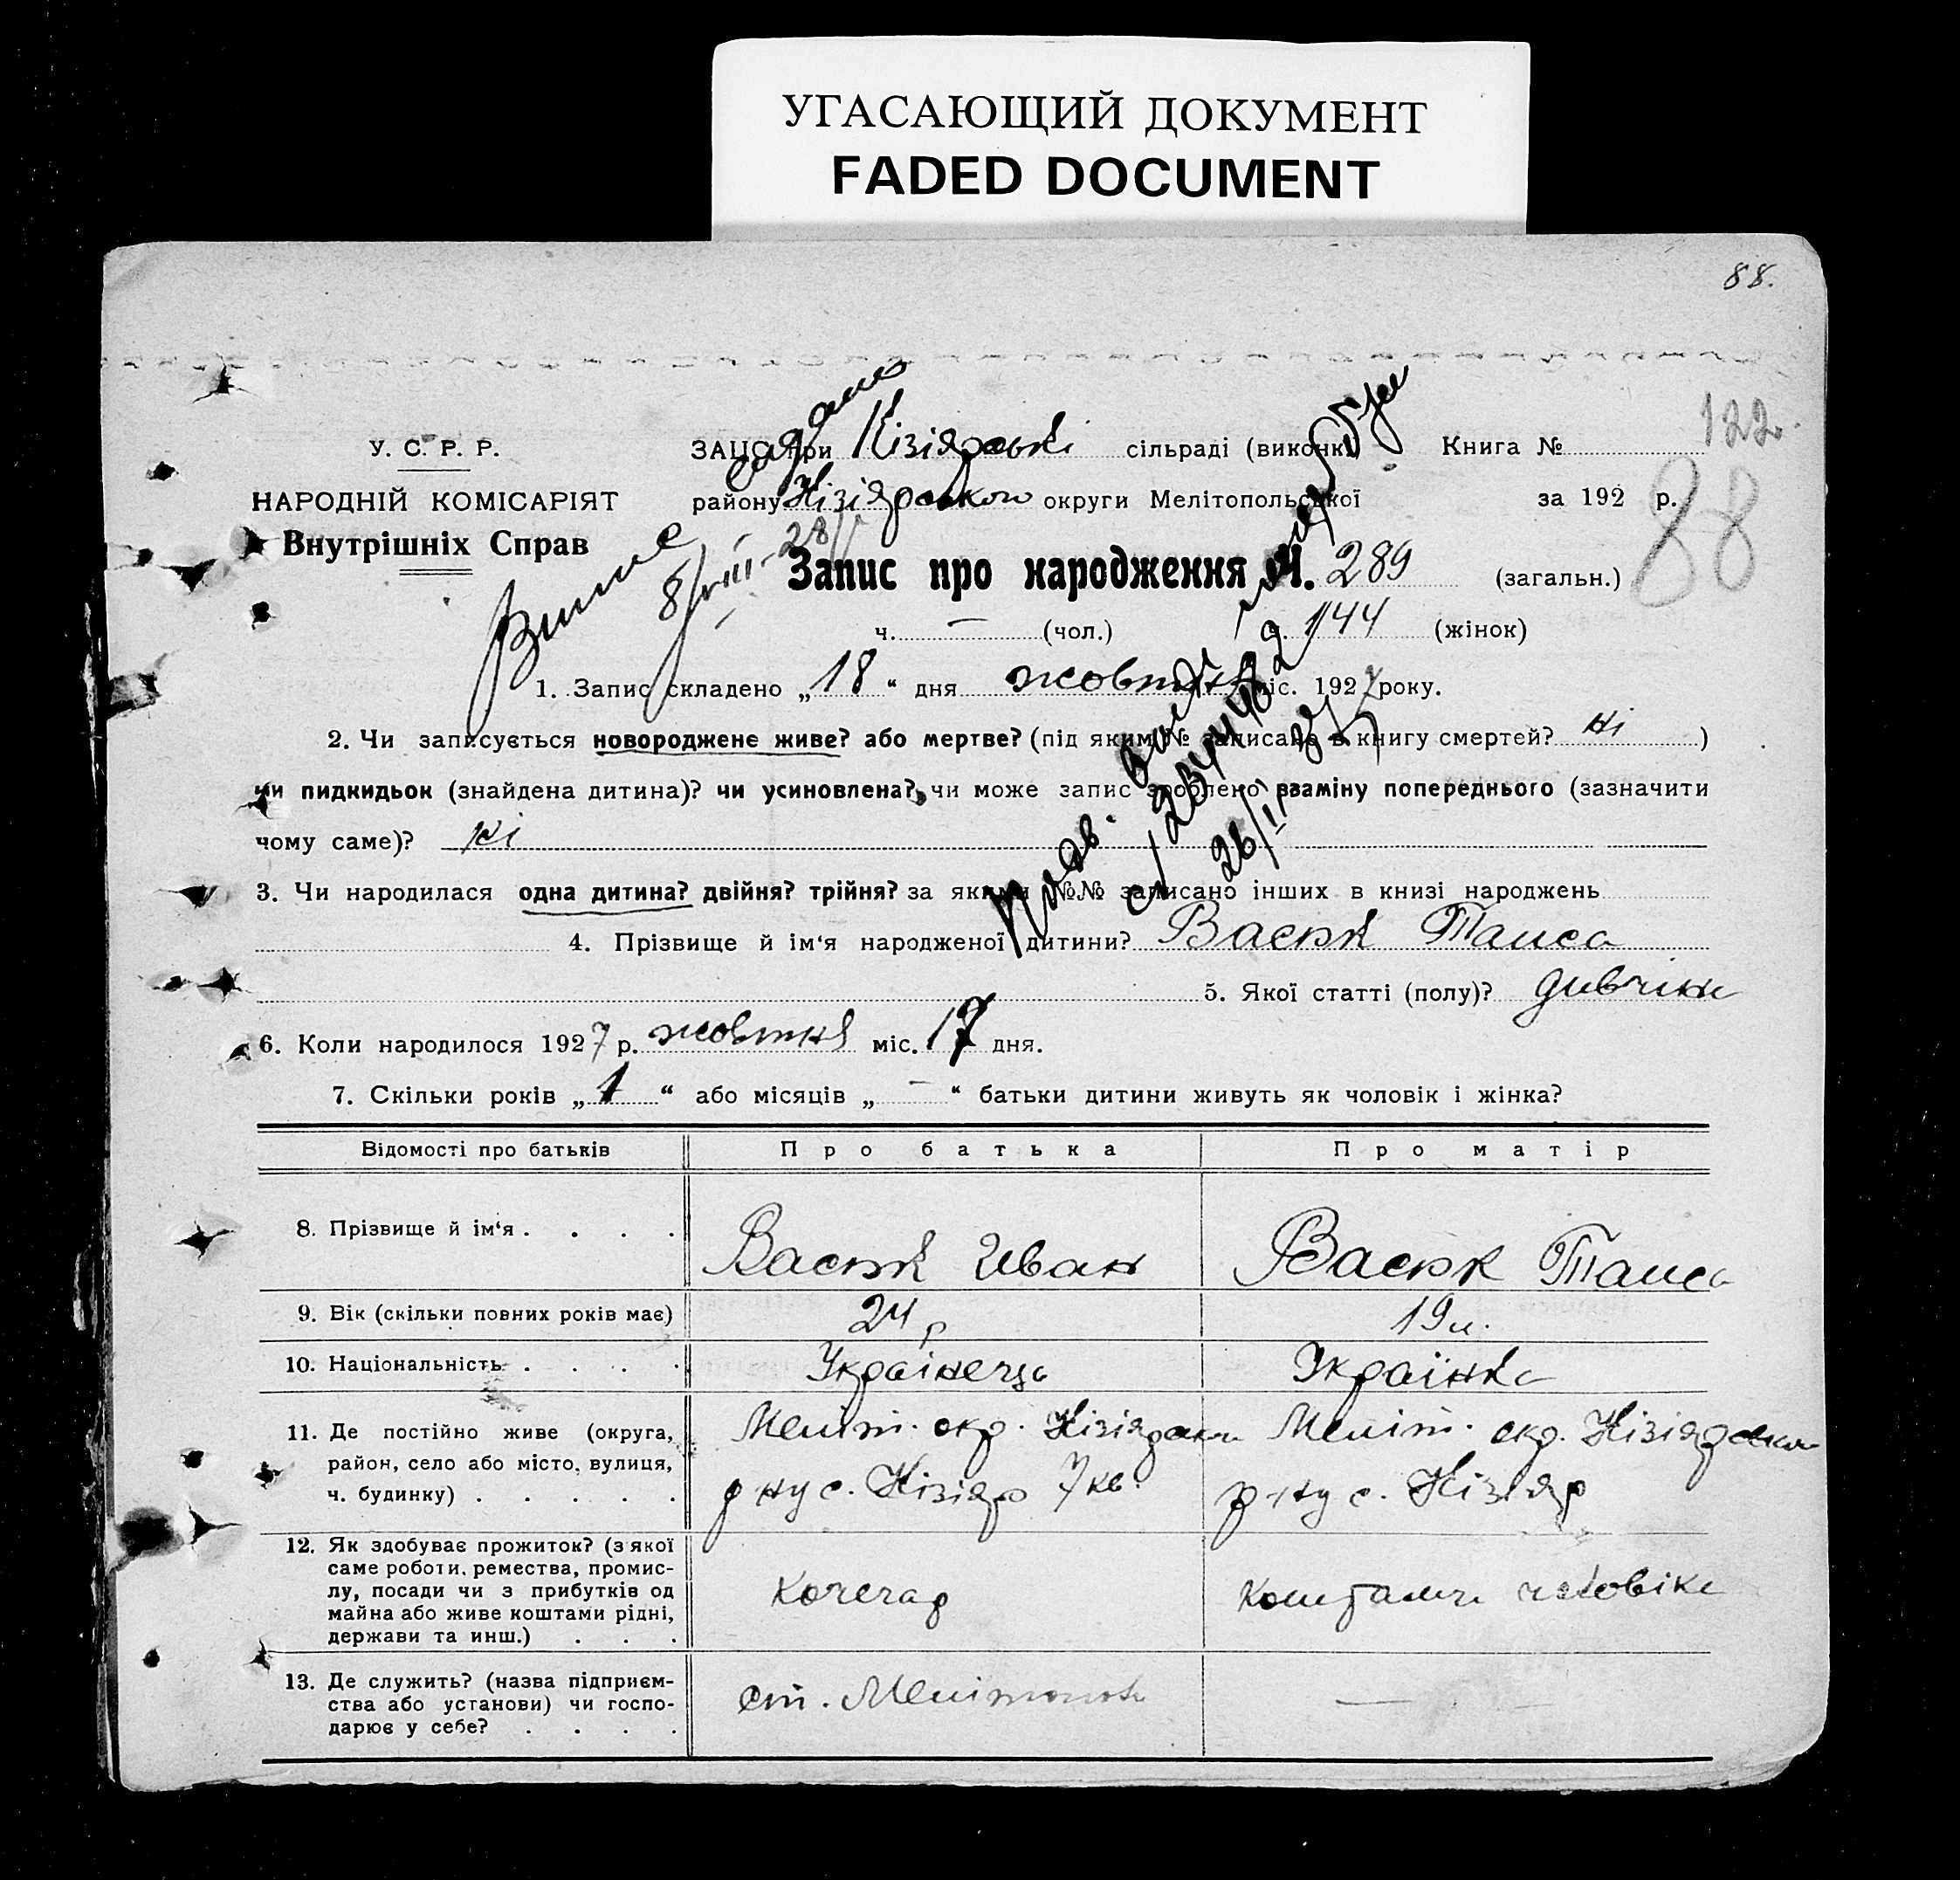 УГАСАЮЩИЙ ДОКУМЕНТ
FADED DOCUMENT
88.
122
88
У. С. Р. Р.
НАРОДНІЙ КОМІСАРІЯТ
Внутрішніх Справ
ЗАЦС при Кізіярські сільраді (виконк.) Книга №
району Кізіярськои округи Мелітопольської за 192 р.
8/VIII-28
Запис про народження Ч. 289 (загальн.)
ч. — (чол.) ч. 144 (жінок)
1. Запис складено „18“ дня жовтня міс. 1927 року.
2. Чи записується новороджене живе? або мертве? (під яким № записано в книгу смертей? ні )
чи пидкидьок (знайдена дитина)? чи усиновлена?, чи може запис зроблено взаміну попереднього (зазначити
чому саме)? ні
3. Чи народилася одна дитина? двійня? трійня? за якими №№ записано інших в книзі народжень
4. Прізвище й ім‘я народженої дитини? Васюк Таиса
5. Якої статті (полу)? дивчини
6. Коли народилося 1927 р. жовтня міс. 17 дня.
7. Скільки років „1“ або місяців „—“ батьки дитини живуть як чоловік і жінка?
Відомості про батьків Про батька Про матір
8. Прізвище й ім‘я . . . . Васюк Иван Васюк Таиса
9. Вік (скільки повних років має) 24 р 19 л.
10. Національність . . . . Українець Українка
11. Де постійно живе (округа,
район, село або місто, вулиця,
ч. будинку) . . . . .
Меліт. окр. Кізіярськ
р ну с. Кізіяр 7 кв.
Меліт. окр. Кізіярськои
р-ну с. Кізіяр
12. Як здобуває прожиток? (з якої
саме роботи, ремества, промис-
лу, посади чи з прибутків од
майна або живе коштами рідні,
держави та инш.) . . .
Кочегар
Коштами чиловіка
13. Де служить? (назва підприєм-
ства або установи) чи госпо-
дарює у себе? . . . .
ст. Мелітополь
—